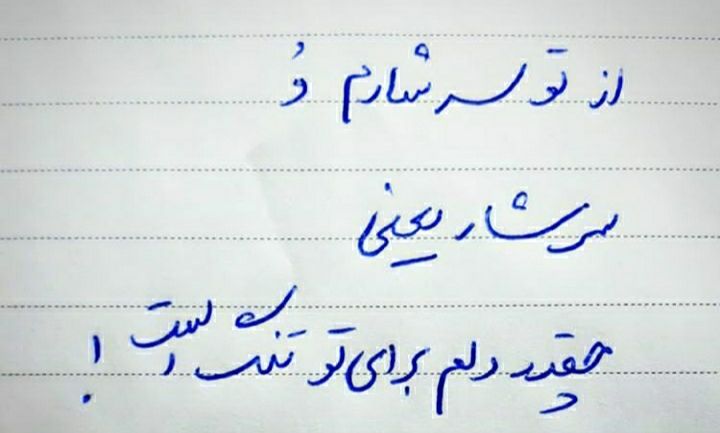 از تو سرشارم وُ
سرشار یعنی
چقدر دلم برای تو تنگ است !